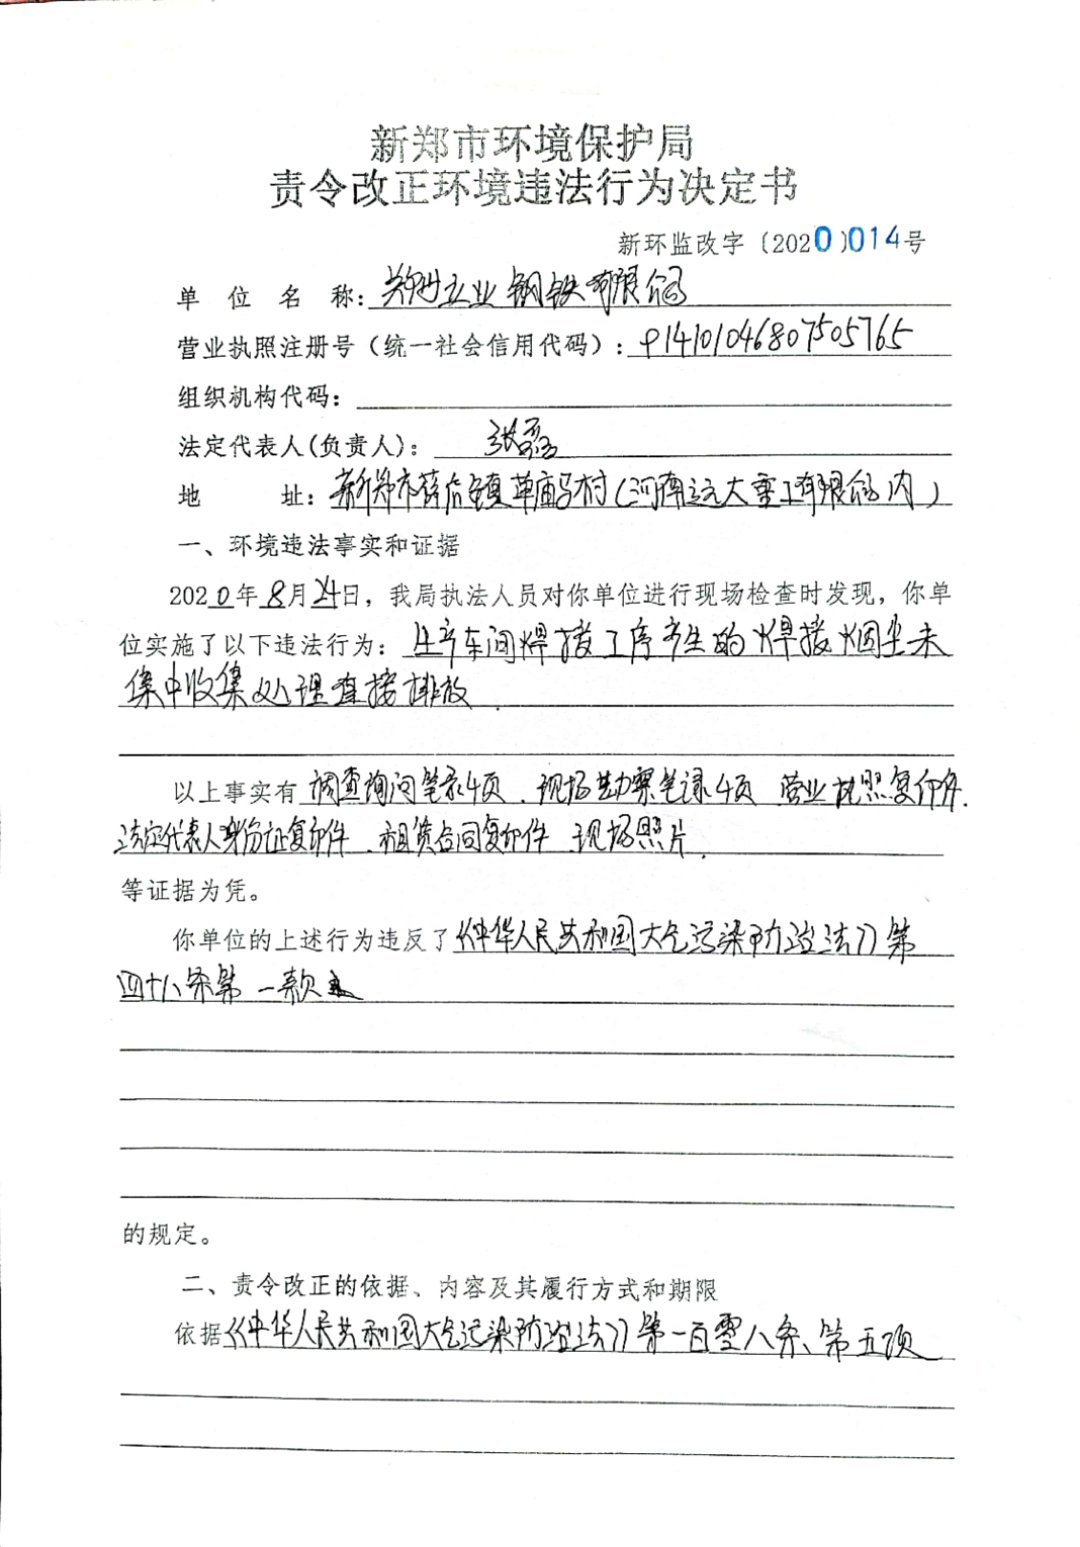 新郑市环境保护局
责令改正环境违法行为决定书
新环监改字〔2020〕014号
单位名称：郑州立业钢铁有限公司
营业执照注册号（统一社会信用代码）：914101046807505765
组织机构代码：
法定代表人(负责人)：张磊
地址：新郑市薛店镇草庙马村（河南远大重工有限公司内）
一、环境违法事实和证据
2020年8月24日，我局执法人员对你单位进行现场检查时发现，你单
位实施了以下违法行为：生产车间焊接工序产生的焊接烟尘未
集中收集处理直接排放.
以上事实有调查询问笔录4页、现场勘察笔录4页 营业执照复印件.
法定代表人身份证复印件、租赁合同复印件 现场照片.
等证据为凭。
你单位的上述行为违反了《中华人民共和国大气污染防治法》第
四十八条第一款
的规定。
二、责令改正的依据、内容及其履行方式和期限
依据《中华人民共和国大气污染防治法》第一百零八条、第五项